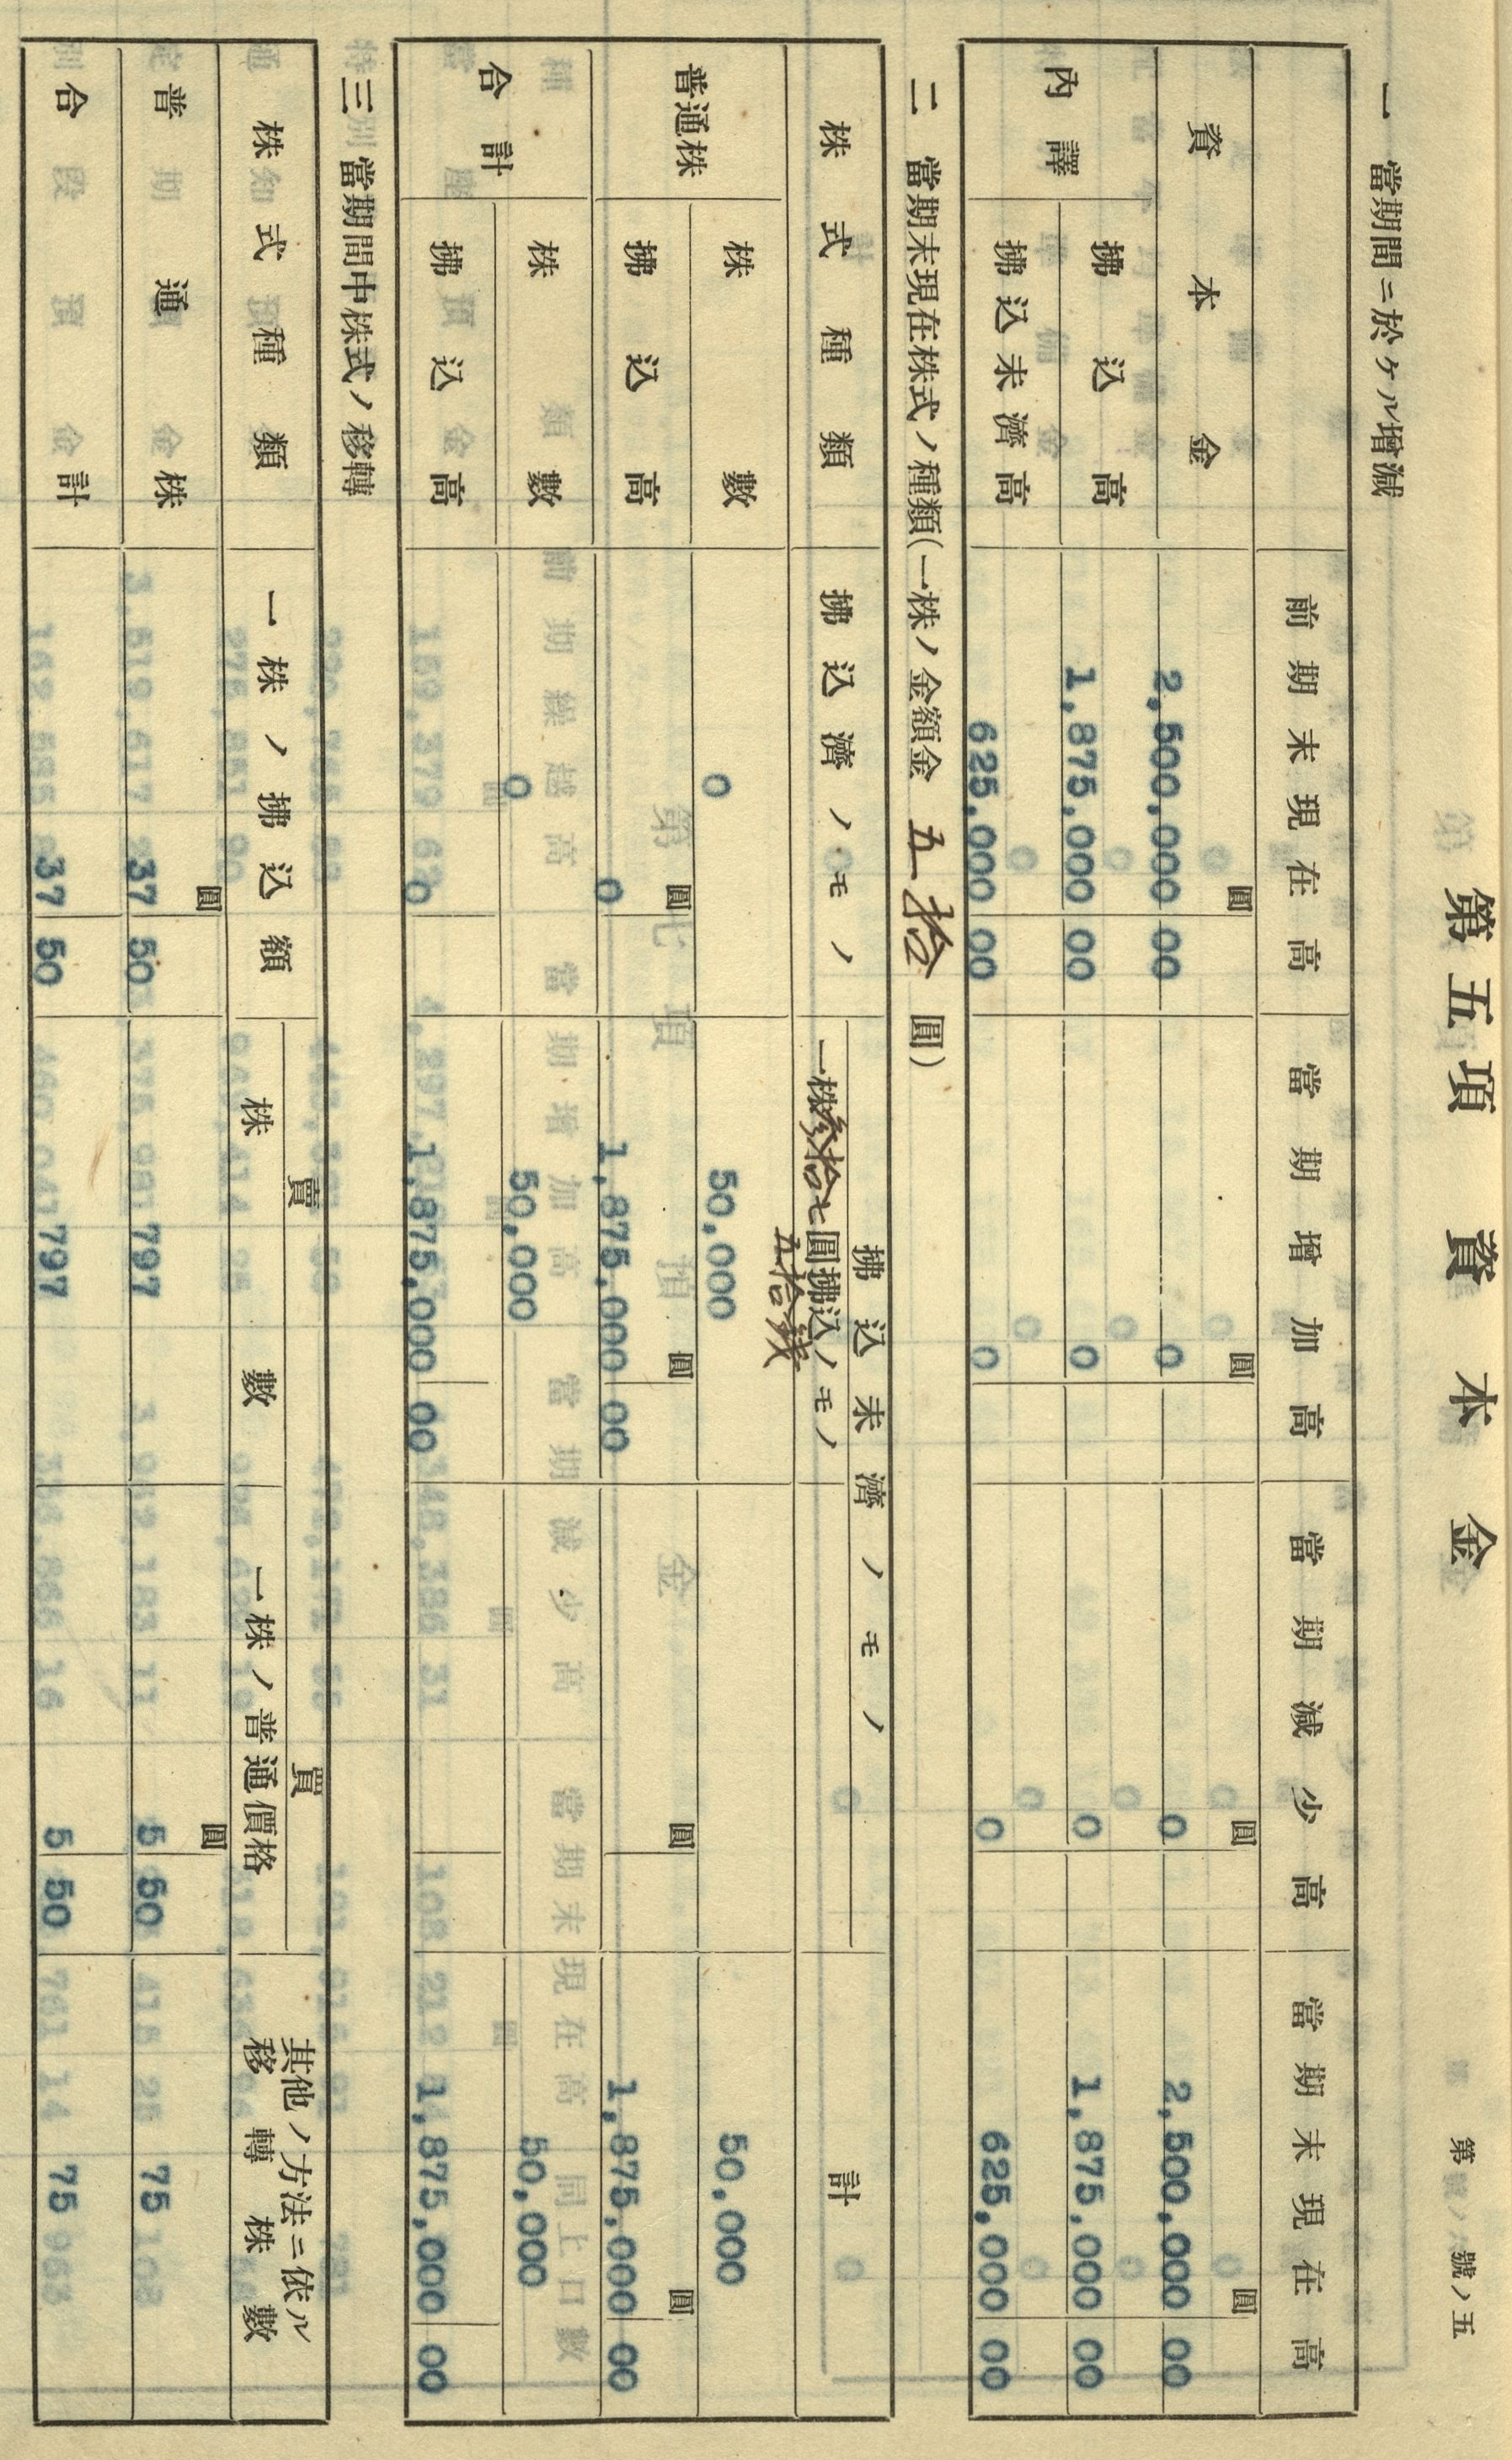 第號ノ五
第五項 資本金
一 當期間ニ於ケル增減
前期末現在高 當期增加高 當期減少高 當期末現在高
圓 圓 圓 圓
資本金 2,500,000 00 0 0 2,500,000 00
內譯
拂込高 1,875,000 00 0 0 1,875,000 00
拂込未濟高 625,000 00 0 0 625,000 00
二 當期末現在株式ノ種類(一株ノ金額金 五拾 圓)
株式種類 拂込濟ノモノ 拂込未濟ノモノ 計
一株參拾七圓拂込ノモノ
五拾錢
普通株
株數 0 50,000 50,000
圓 圓 圓 圓
拂込高 0 1,875,000 00 1,875,000 00
合計
株數 0 50,000 50,000
拂込高 0 1,875,000 00 1,875,000 00
三 當期間中株式ノ移轉
株式種類 一株ノ拂込額 賣買 其他ノ方法ニ依ル
移轉株數
株數 一株ノ普通價格
圓 圓
普通株 37 50 797 5 50 75
合計 37 50 797 5 50 75